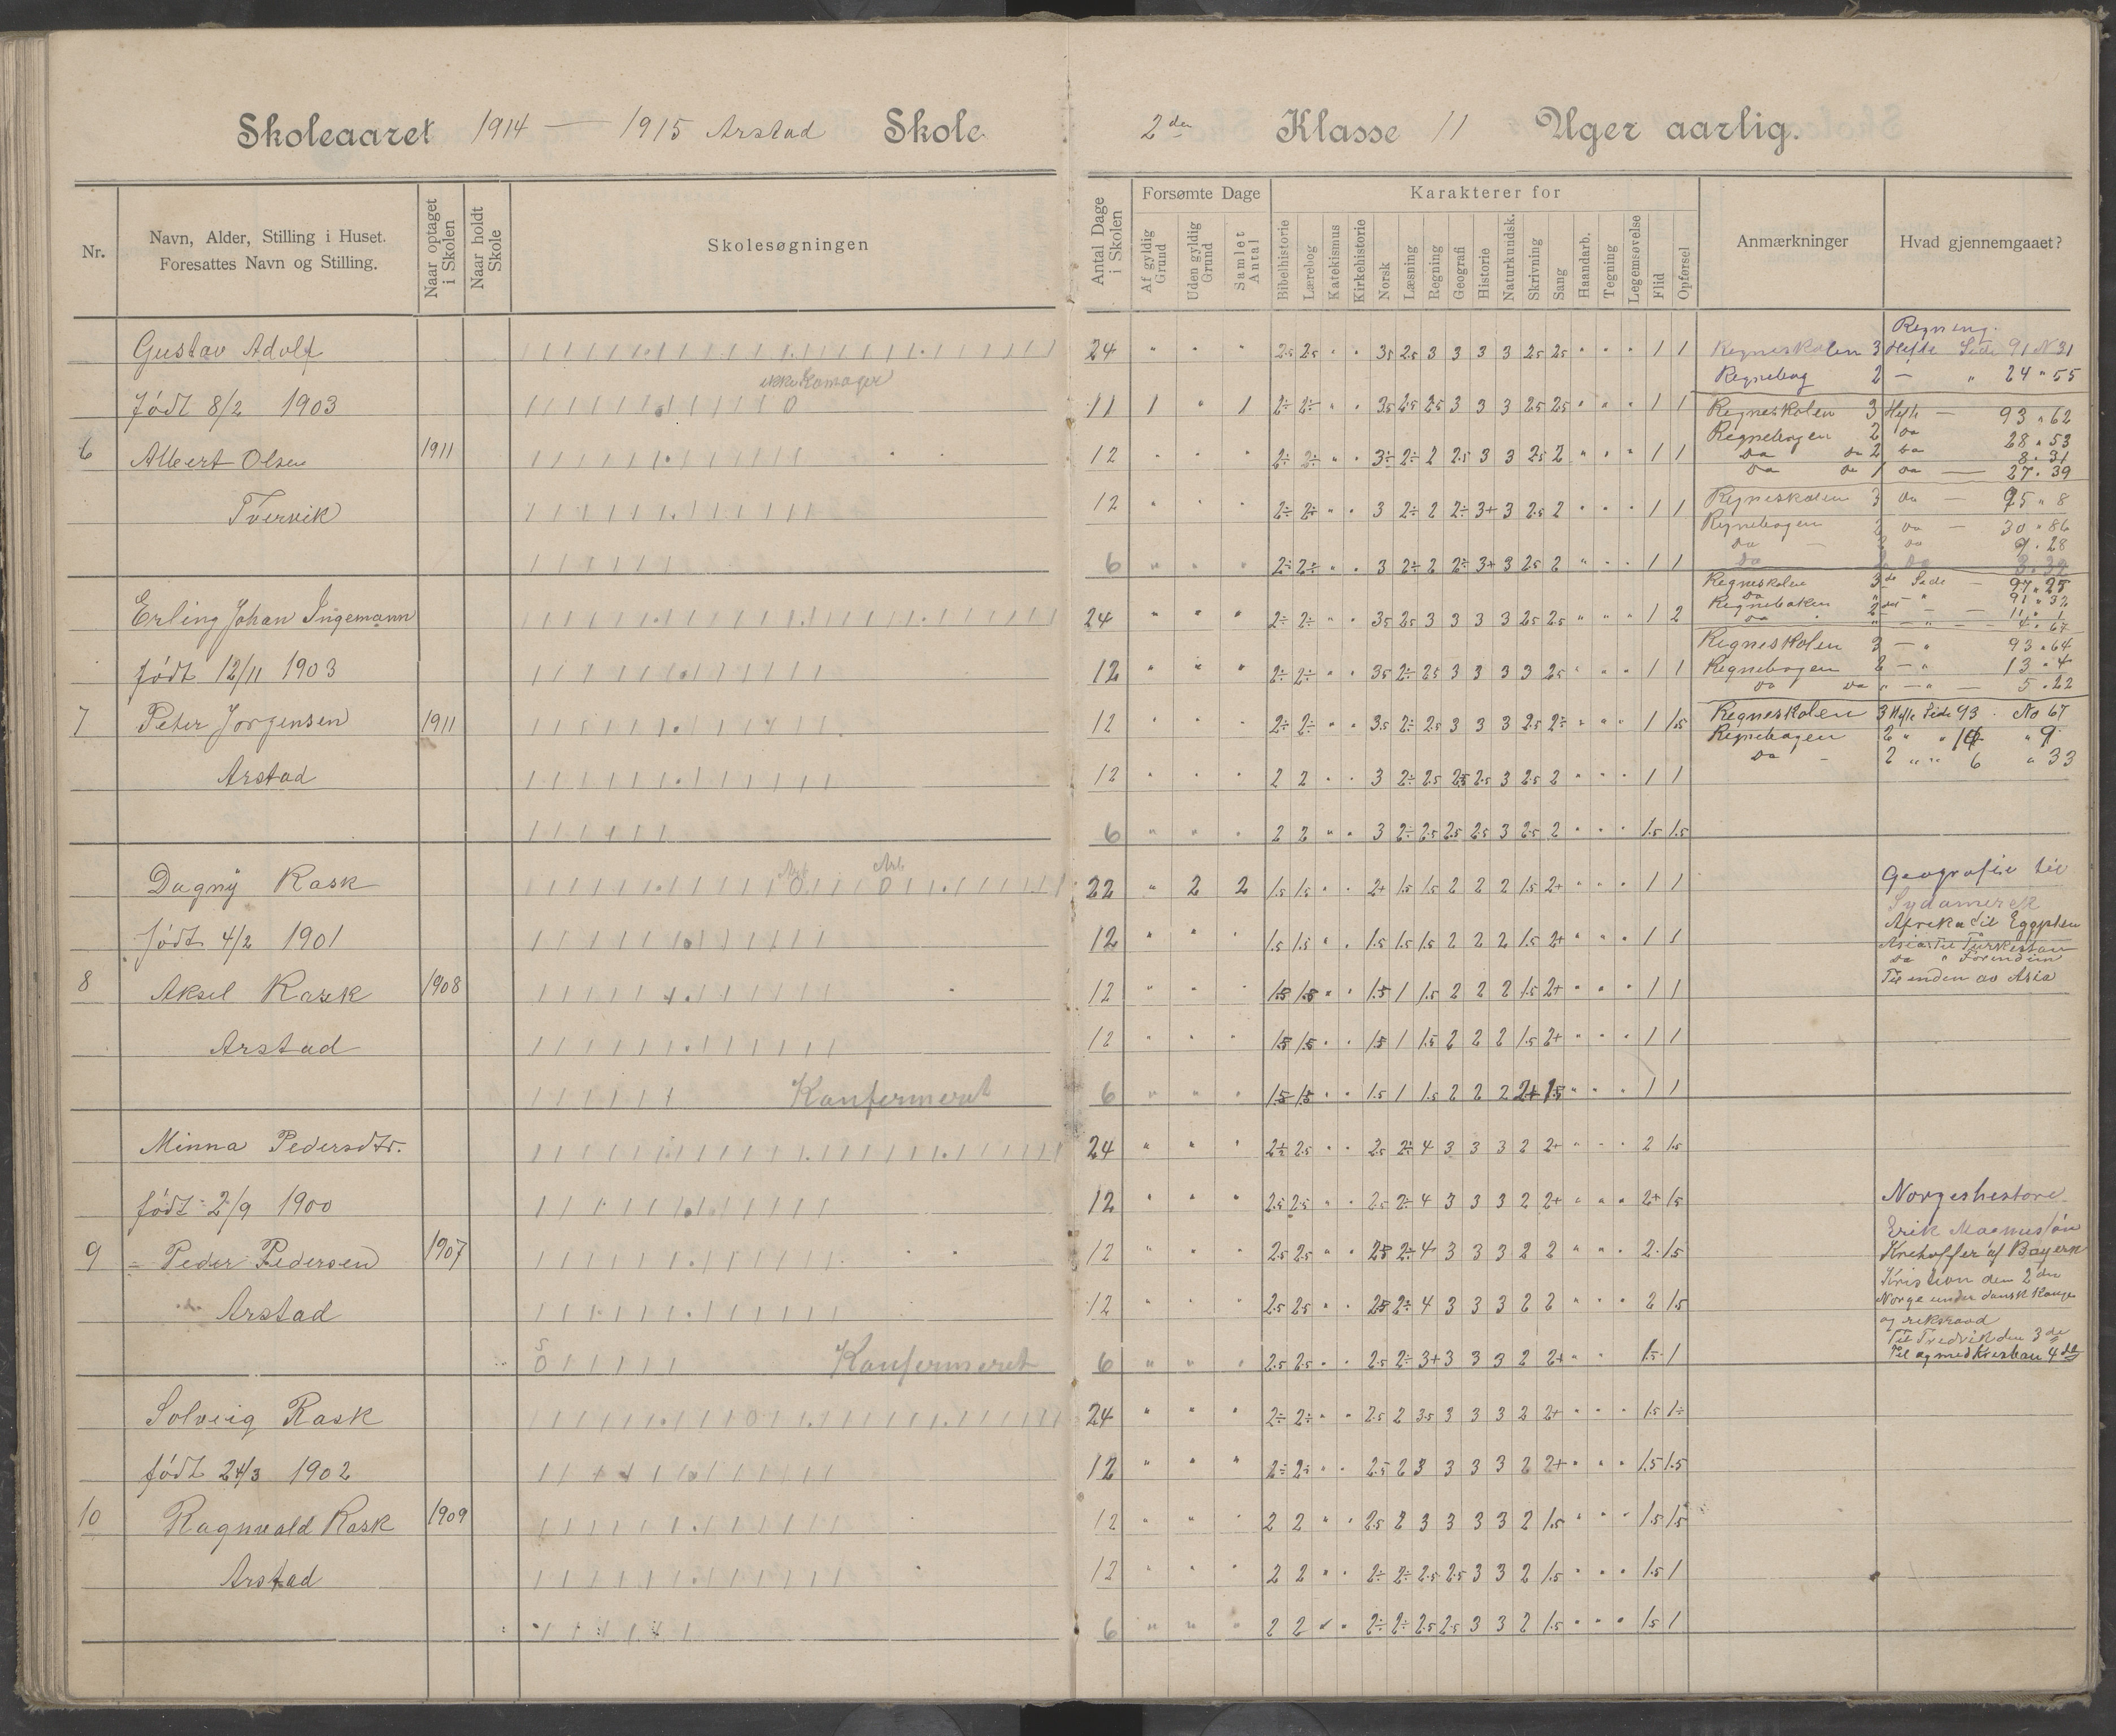 Skoleaaret 1914 — 1915 Arstad Skole 2den Klasse 11 Uger aarlig.
Nr. Navn, Alder, Stilling i Huset. Foresattes Navn og Stilling. Naar optaget i Skolen Naar holdt Skole Skolesøgningen Antal Dage i Skolen Forsømte Dage Af gyldig Grund Uden gyldig Grund Samlet Antal
Karakterer for Bibelhistorie Lærebog Katekismus Kirkehistorie Norsk Læsning Regning Geografi Historie Naturkundsk. Skrivning Sang Haandarb. Tegning Legemsøvelse Flid Opførsel
Anmærkninger Hvad gjennemgaaet?
Gustav Adolf 24 " " " 2.5 2.5 " " 3.5 2.5 3 3 3 3 2.5 2.5 " " " 1 1
født 8/2 1903 ikke Komager 11 1 " 1 2÷ 2÷ " " 3.5 2.5 2.5 3 3 3 2.5 2.5 " " " 1 1
6 Albert Olsen 1911 12 " " " 2÷ 2÷ " " 3÷ 2÷ 2 2.5 3 3 2.5 2 " " " 1 1
Tvervik 12 " " " 2÷ 2÷ " " 3 2÷ 2 2÷ 3+ 3 2.5 2 " " " 1 1
6 " " " 2÷ 2÷ " " 3 2÷ 2 2÷ 3+ 3 2.5 2 " " " 1 1
Erling Johan Ingemann 24 " " " 2÷ 2÷ " " 3.5 2.5 3 3 3 3 2.5 2.5 " " " 1 2
født 12/11 1903 12 " " " 2÷ 2÷ " " 3.5 2÷ 2.5 3 3 3 3 2.5 " " " 1 1
7 Peter Jorgensen 1911 12 " " " 2÷ 2÷ " " 3.5 2÷ 2.5 3 3 3 2.5 2÷ " " " 1 1.5
Arstad 12 " " " 2 2 " " 3 2÷ 2.5 2.5 2.5 3 2.5 2 " " " 1 1
6 " " " 2 2 " " 3 2÷ 2.5 2.5 2.5 3 2.5 2 " " " 1.5 1.5
Dagny Rask 22 " 2 2 1.5 1.5 " " 2+ 1.5 1.5 2 2 2 1.5 2+ " " " 1 1
født 4/2 1901 12 " " " 1.5 1.5 " " 1.5 1.5 1.5 2 2 2 1.5 2+ " " " 1 1
8 Aksel Rask 1908 12 " " " 1.5 1.5 " " 1.5 1 1.5 2 2 2 1.5 2+ " " " 1 1
Arstad 12 " " " 1.5 1.5 " " 1.5 1 1.5 2 2 2 1.5 2+ " " " 1 1
Konfermeret 6 " " " 1.5 1.5 " " 1.5 1 1.5 2 2 2 2+ 1.5 " " " 1 1
Minna Pedersdtr. 24 " " " 2÷ 2.5 " " 2.5 2÷ 4 3 3 3 2 2+ " " " 2 1.5
født 2/9 1900 12 " " " 2.5 2.5 " " 2.5 2÷ 4 3 3 3 2 2+ " " " 2+ 1.5
9 Peder Pedersen 1907 12 " " " 2.5 2.5 " " 2.5 2÷ 4 3 3 3 2 2 " " " 2 1.5
Arstad 12 " " " 2.5 2.5 " " 2.5 2÷ 4 3 3 3 2 2 " " " 2 1.5
Konfermeret 6 " " " 2.5 2.5 " " 2.5 2÷ 3+ 3 3 3 2 2+ " " 1.5 1
Solveig Rask 24 " " " 2÷ 2÷ " " 2.5 2 3.5 3 3 3 2 2+ " " " 1.5 1÷
født 24/3 1902 12 " " " 2÷ 2÷ " " 2.5 2 3 3 3 3 2 2+ " " " 1.5 1.5
10 Ragnvald Rask 1909 12 " " " 2 2 " " 2.5 2 3 3 3 3 2 1.5 " " " 1.5 1.5
Arstad 12 " " " 2 2 " " 2÷ 2÷ 2.5 2.5 3 3 2 1.5 " " " 1.5 1
6 " " " 2 2 " " 2÷ 2÷ 2.5 2.5 3 3 2 1.5 " " " 1.5 1
Regning.
Regneskolen 3 Hefte Side 91 N 31
Regnebog 2 — " 24 " 55
Regneskolen 3 Hefte — 93 " 62
Regnebogen 2 do 28 " 53
Do do 2 do 8 " 31
Do do 1 do — 27 " 39
Regneskolen 3 do — 95 " 8
Regnebogen 2 do — 30 " 86
Do — 2 do 9 " 28
Regneskolen 3de Side — 97 " 25
Do " — " 91 " 32
Regneboken 2det — 11 " 1
Do " — " — 4 " 67
Regneskolen 3 — " 93 " 64
Regnebogen 2 — " 13 " 4
Do Do " — " — 5 " 22
Regneskolen 3 Hefte Side 93 No 67
Regnebogen 2 " " " 9
Do 2 " " 6 " 33
Geografie til
Sydamerek
Afreka til Egypten
Asia til Turkestan
Do "
Til enden av Asia
Norgeshestore
Erik Magnussøn
Krestoffer af Bayern
Kristian den 2den
Norge under dansk Konge
og reksraad
Til Fredrik den 3de
Til og med Krestian 4de